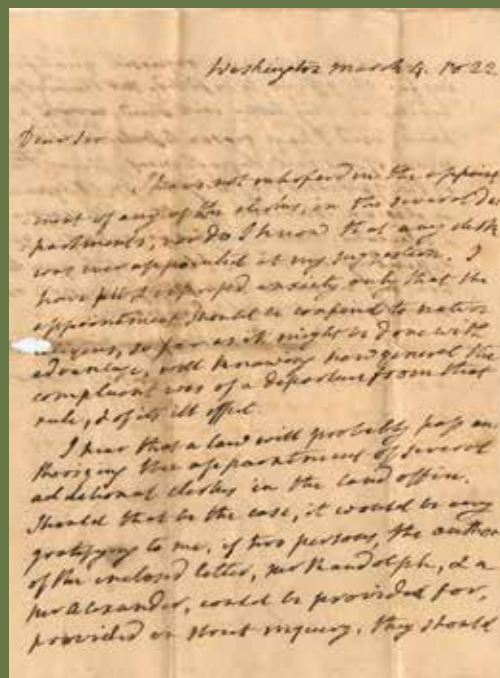 Washington March 4. 1822
Dear Sir
I have not interfered in the appoint
ment of any of the clerks, in the several de
partments, nor do I know that any clerk
was ever appointed at my suggestion. I
have expressed anxiety only that the
appointment should be confined to native
citizens, so far as it might be done with
advantage, well knowing how general the
complaint was of a departure from that
rule, & of its ill effect.
I hear that a law will probably pass au
thorizing the appointment of several
additional clerks in the land office.
Should that be the case, it would be very
gratifying to me, if two persons, the author
of the enclosed letter, mr Randolph, & a
mr Alexander, could be provided for,
provided on strict inquiry, they should